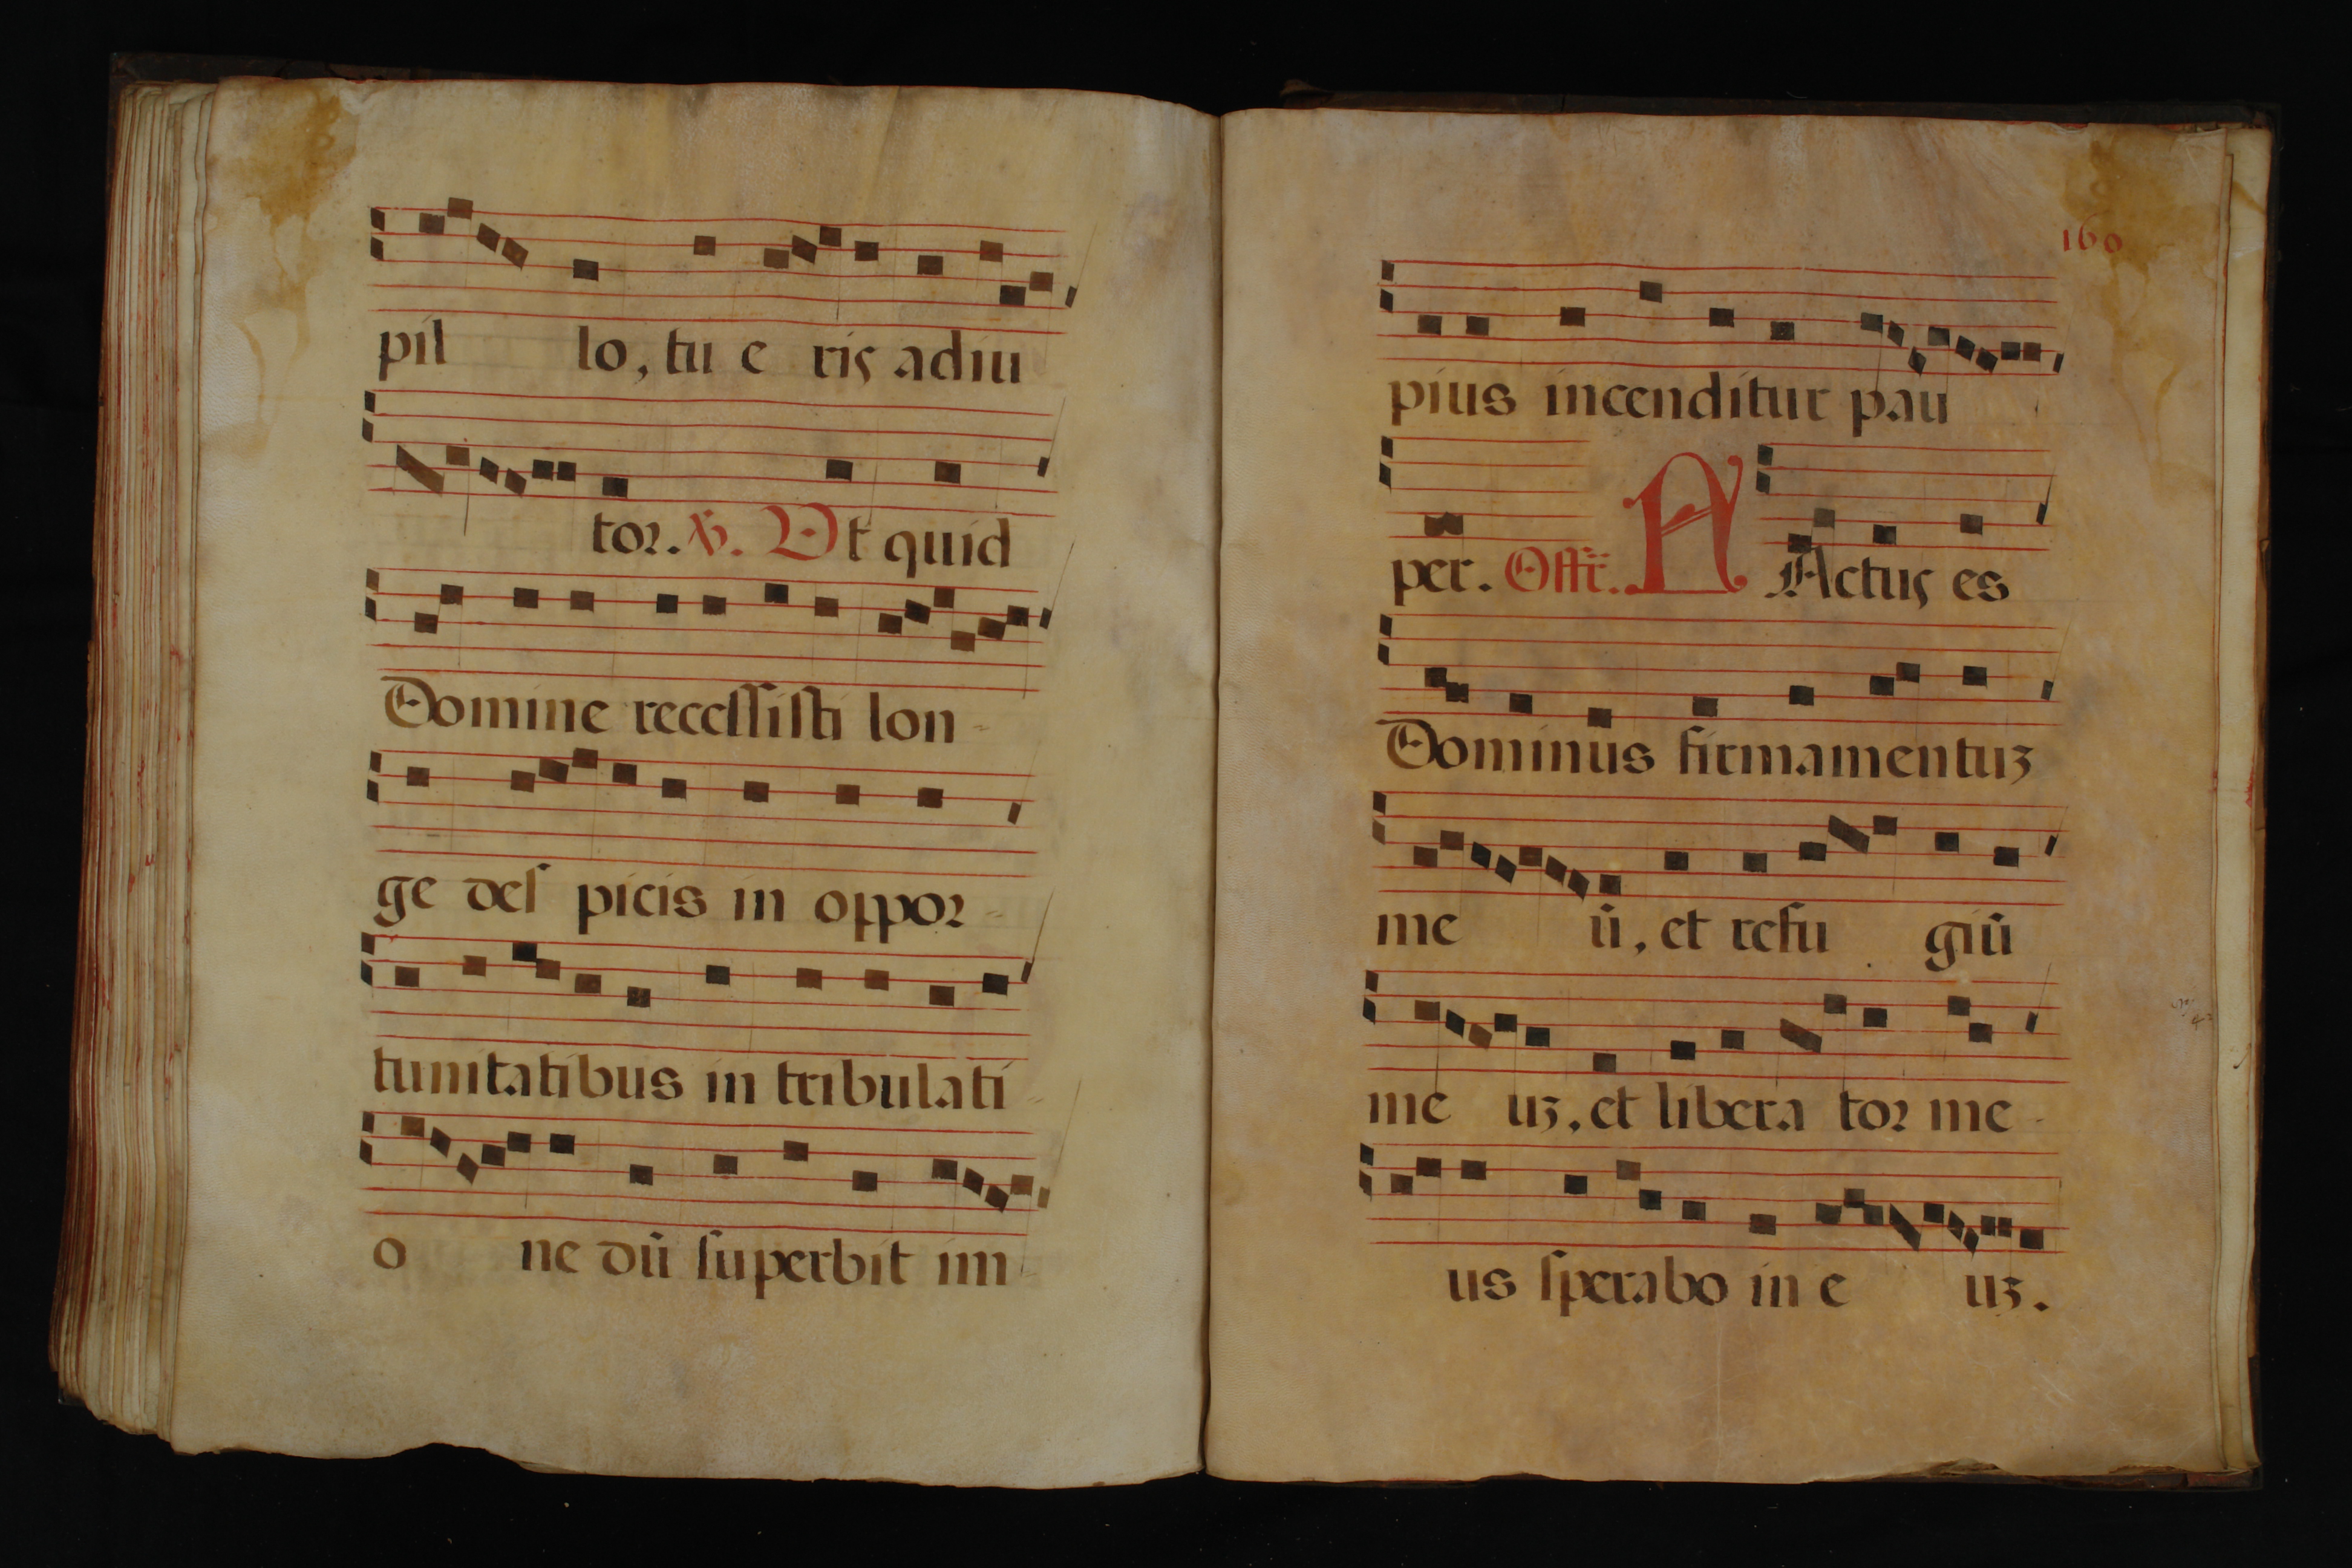 pil lo, tu e ris adiu
tor. ℣. Ut quid
Domine recessisti lon-
ge des picis in oppor-
tunitatibus in tribulati-
o ne dū superbit im-
160
pius incenditur pau
per. Offr̄. F Actus es
Dominus firmamentuz
me ū, et refu giū
me uz, et libera tor me-
us sperabo in e uz.